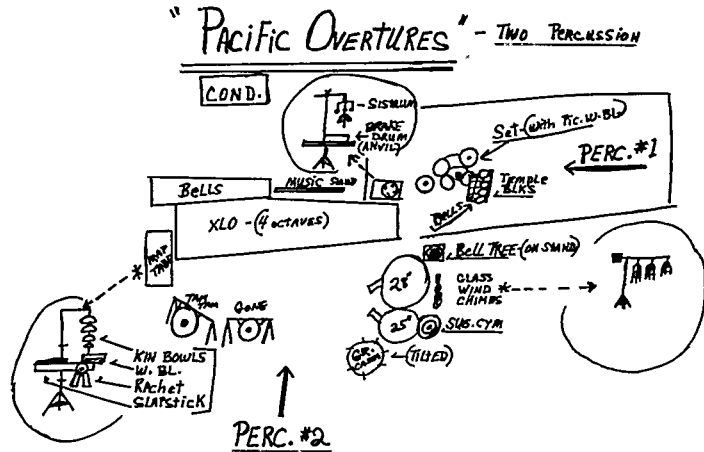 "PACIFIC OVERTURES" - TWO PERCUSSION
COND.
SISTRUM
BRAKE
DRUM
(ANVIL)
SET-(with Pic. W. BL)
PERC. #1
TEMPLE
BLKS
BELLS
MUSIC STAND
BELLS
XLO-(4 OCTAVES)
TRAP
TABLE
BELL TREE-(ON STAND)
28"
GLASS
WIND
CHIMES
*
*
TAM
TAM
GONG
25"
SUS. CYM
GR.
CASSA
(TILTED)
KIN BOWLS
W. BL.
RACHET
SLAPSTICK
PERC. #2